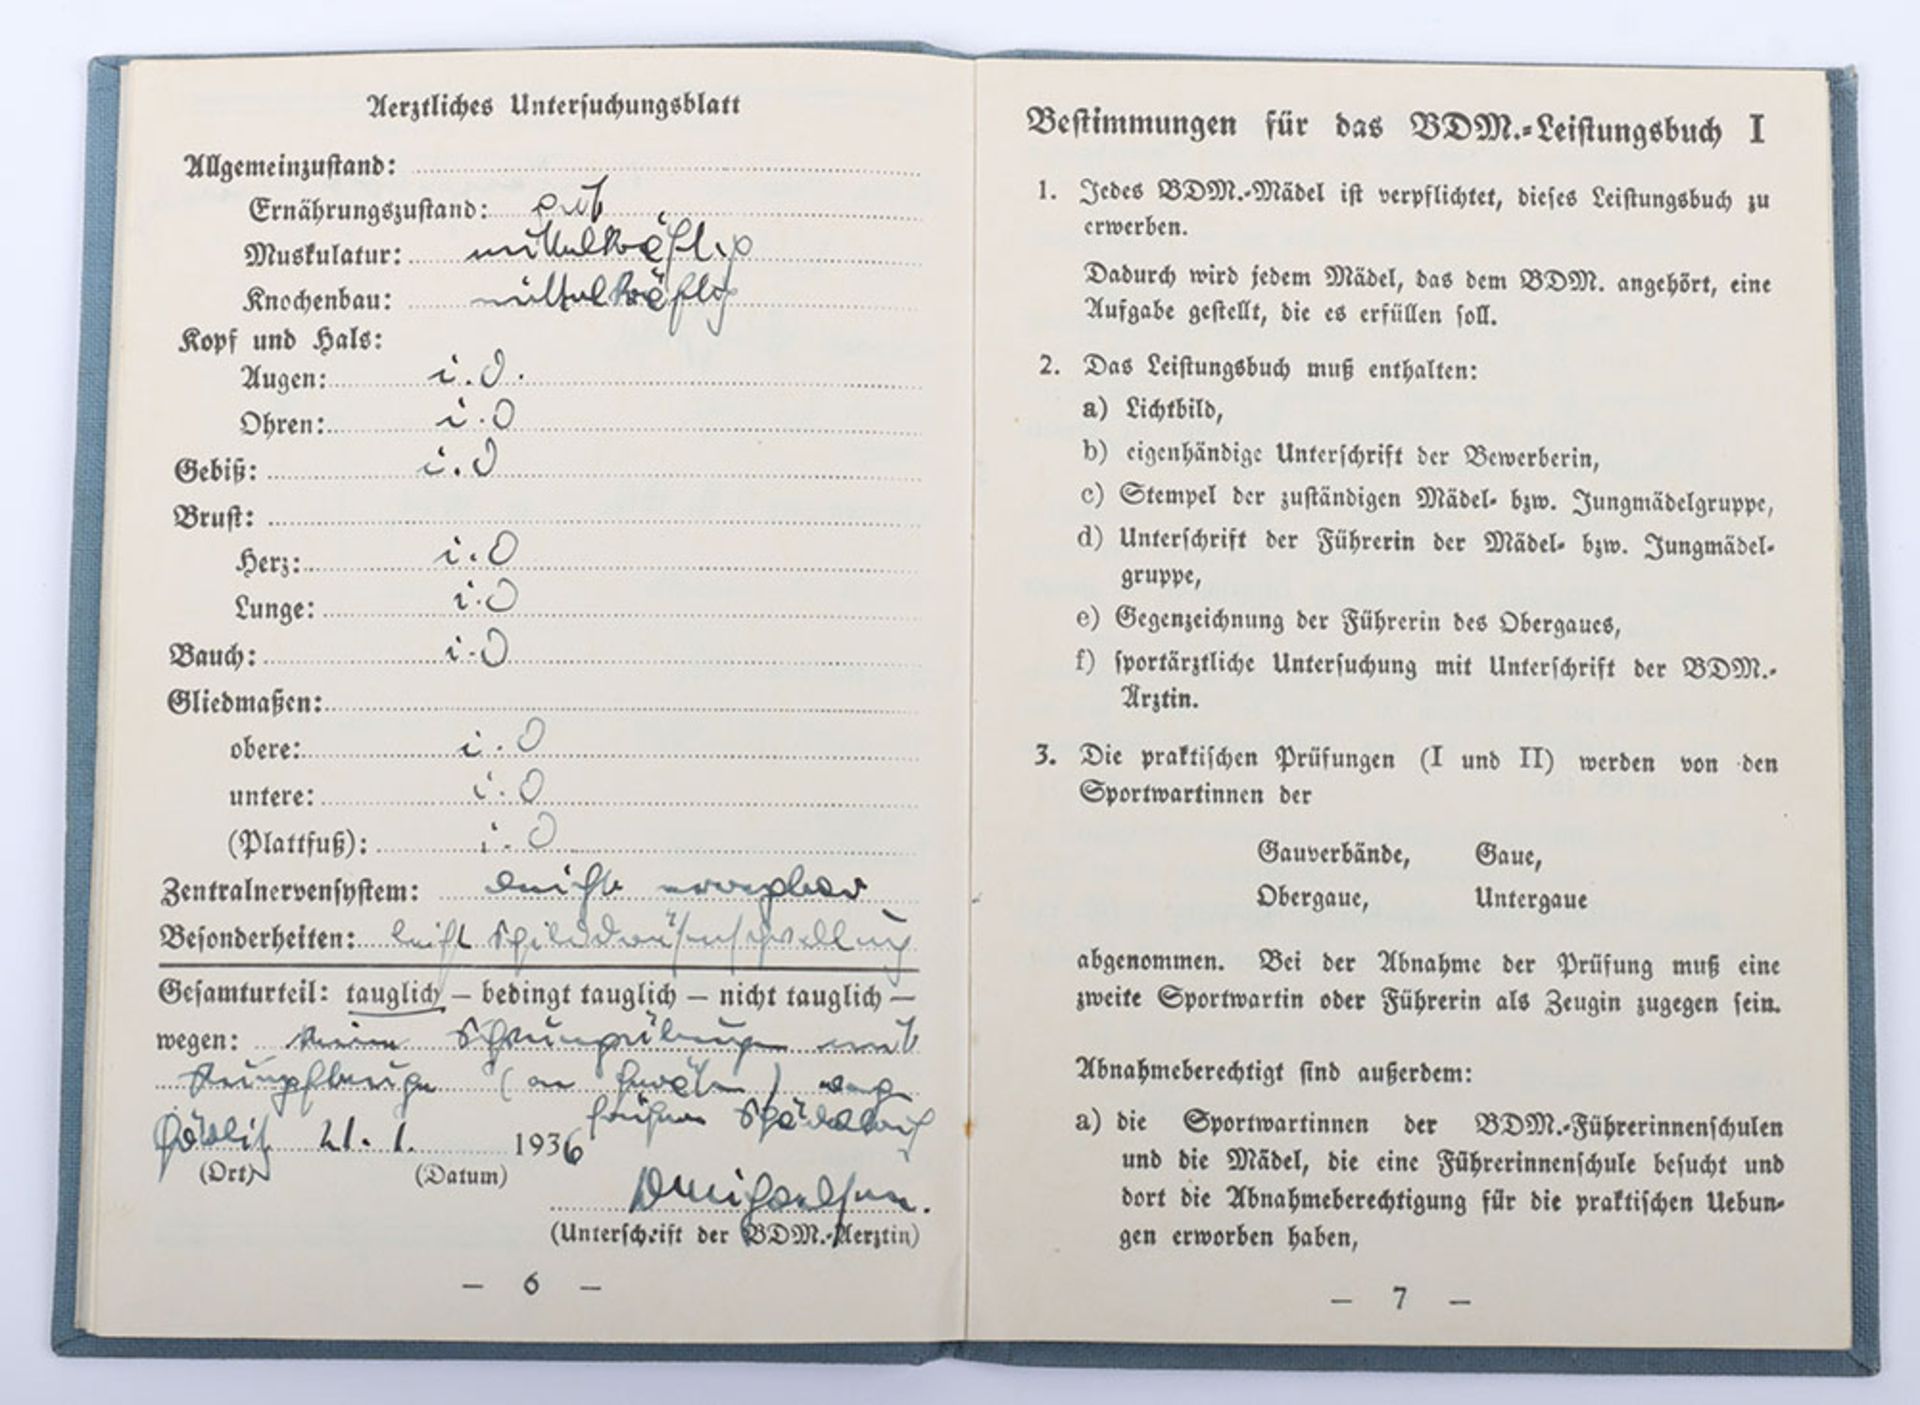 Aerztliches Untersuchungsblatt
Allgemeinzustand:
Ernährungszustand: gut
Muskulatur: mittelkräftig
Knochenbau: mittelkräftig
Kopf und Hals:
Augen: i.O.
Ohren: i.O
Gebiß: i.O
Brust:
Herz: i.O
Lunge: i.O
Bauch: i.O
Gliedmaßen:
obere: i.O
untere: i.O
(Plattfuß): i.O
Zentralnervensystem: leicht erregbar
Besonderheiten: leicht Schilddrüsenschwellung
Gesamturteil: tauglich – bedingt tauglich – nicht tauglich –
wegen: keine Sprungübungen mit
(an Geräten) weg.
früherer
Görlitz 21. 1. 1936
(Ort) (Datum)
(Unterschrift der BDM.-Aerztin)
— 6 —
Bestimmungen für das BDM.-Leistungsbuch I
1. Jedes BDM.-Mädel ist verpflichtet, dieses Leistungsbuch zu
erwerben.
Dadurch wird jedem Mädel, das dem BDM. angehört, eine
Aufgabe gestellt, die es erfüllen soll.
2. Das Leistungsbuch muß enthalten:
a) Lichtbild,
b) eigenhändige Unterschrift der Bewerberin,
c) Stempel der zuständigen Mädel- bzw. Jungmädelgruppe,
d) Unterschrift der Führerin der Mädel- bzw. Jungmädel-
gruppe,
e) Gegenzeichnung der Führerin des Obergaues,
f) sportärztliche Untersuchung mit Unterschrift der BDM.-
Ärztin.
3. Die praktischen Prüfungen (I und II) werden von den
Sportwartinnen der
Gauverbände, Gaue,
Obergaue, Untergaue
abgenommen. Bei der Abnahme der Prüfung muß eine
zweite Sportwartin oder Führerin als Zeugin zugegen sein.
Abnahmeberechtigt sind außerdem:
a) die Sportwartinnen der BDM.-Führerinnenschulen
und die Mädel, die eine Führerinnenschule besucht und
dort die Abnahmeberechtigung für die praktischen Uebun-
gen erworben haben,
— 7 —